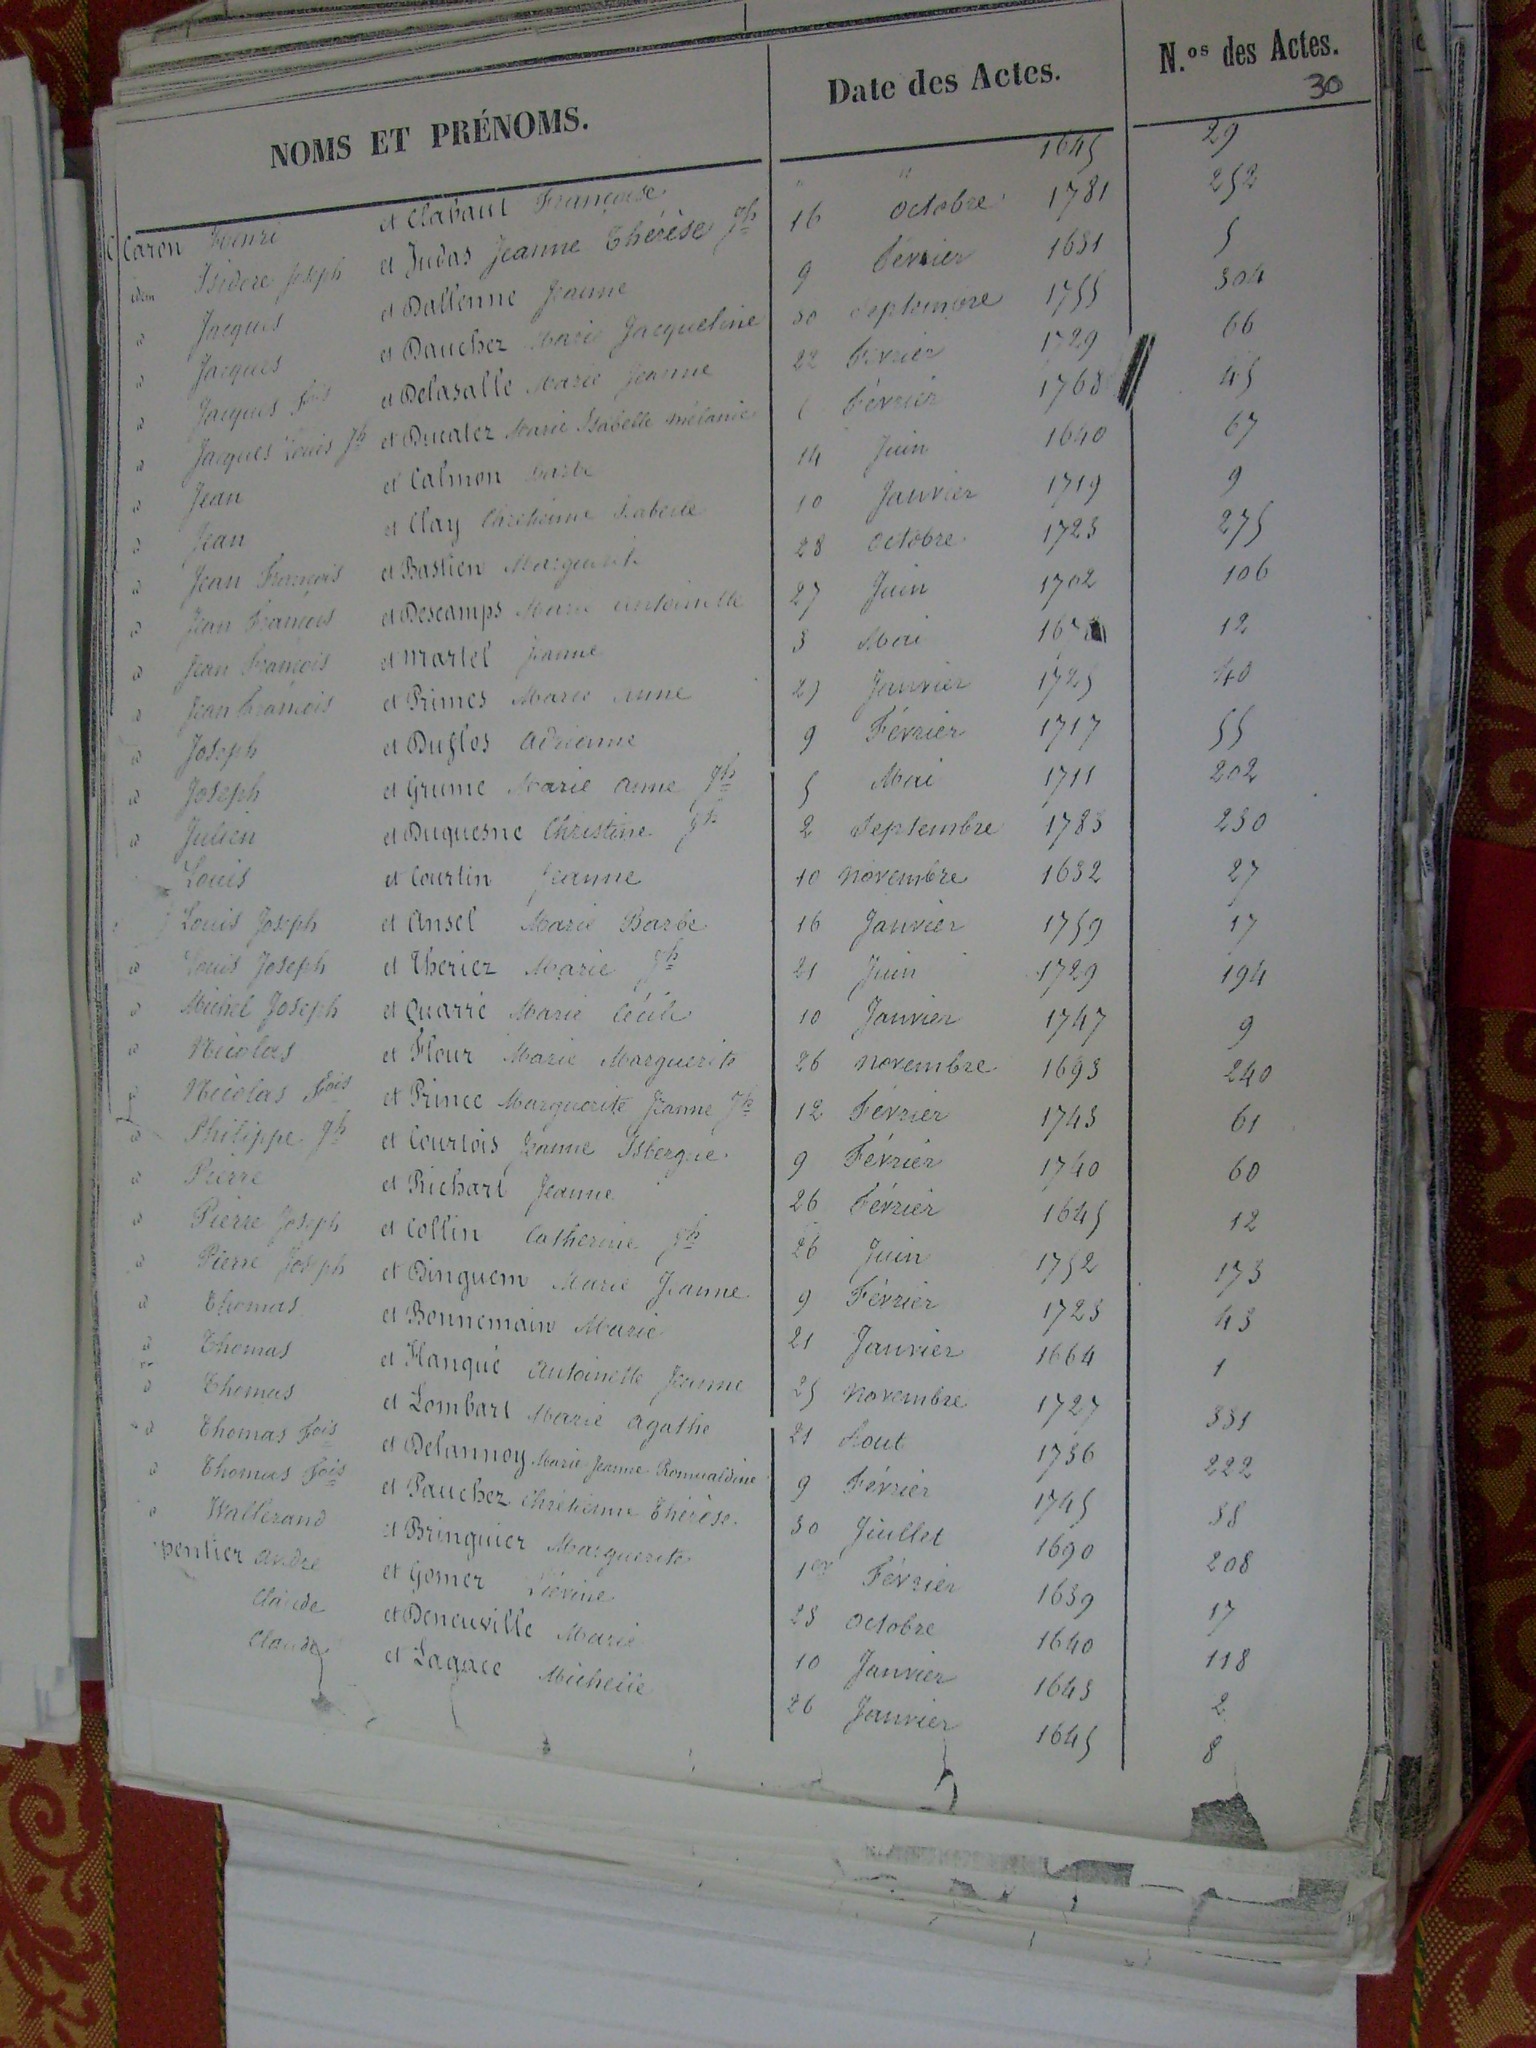 NOMS ET PRÉNOMS. Date des Actes. N.os des Actes.
30
Caron Henri et Clabaut Françoise " " 1645 29
idem Isidore Joseph et Judas Jeanne Thérèse Jh 16 Octobre 1781 252
d Jacques et Dallenne Jeanne 9 Février 1631 5
d Jacques et Dauchez Marie Jacqueline 30 Septembre 1755 304
d Jacques Fois et Delasalle Marie Jeanne 22 Février 1729 66
d Jacques Louis Jh et Ducatez Marie Isabelle Mélanie Février 1768 45
d Jean et Calmon Barbe 14 Juin 1640 67
d Jean et Clay Chrétienne Isabelle 10 Janvier 1719 9
d Jean François et Bastien Marguerite 28 Octobre 1723 275
d Jean François et Descamps Marie Antoinette 27 Juin 1702 106
d Jean François et Martel Jeanne 3 Mai 12
d Jean François et Primes Marie Anne 29 Janvier 1725 40
d Joseph et Duflos Adrienne 9 Février 1717 55
d Joseph et Grume Marie Anne Jh 5 Mai 1711 202
d Julien et Duquesne Christine Jh 2 Septembre 1783 230
Louis et Courtin Jeanne 10 Novembre 1632 27
Louis Joseph et Ansel Marie Barbe 16 Janvier 1759 17
d Louis Joseph et Theriez Marie Jh 21 Juin 1729 194
d Michel Joseph et Quarré Marie Cécile 10 Janvier 1747 9
d Nicolas et Flour Marie Marguerite 26 Novembre 1693 240
Nicolas Fois et Prince Marguerite Jeanne Jh 12 Février 1743 61
d Philippe Jh et Courtois Jeanne Isbergue 9 Février 1740 60
d Pierre et Richart Jeanne 26 Février 1645 12
d Pierre Joseph et Collin Catherine Jh 26 Juin 1752 173
d Pierre Joseph et Dinguem Marie Jeanne 9 Février 1723 43
d Thomas et Bonnemain Marie 21 Janvier 1664 1
d Thomas et Hanqué Antoinette Jeanne 25 Novembre 1727 331
d Thomas et Lombart Marie Agathe 21 Aout 1736 222
d Thomas Fois et Delannoy Marie Jeanne Romualdine 9 Février 1745 38
d Thomas Fois et Pauchez Chrétienne Thérèse 30 Juillet 1690 208
d Wallerand et Bringuier Marguerite 1er Février 1639 17
pentier André et Gomer Liévine 23 Octobre 1640 118
Claude et Deneuville Marie 10 Janvier 1643 2
Claude et Lagace Michelle 26 Janvier 1645 8